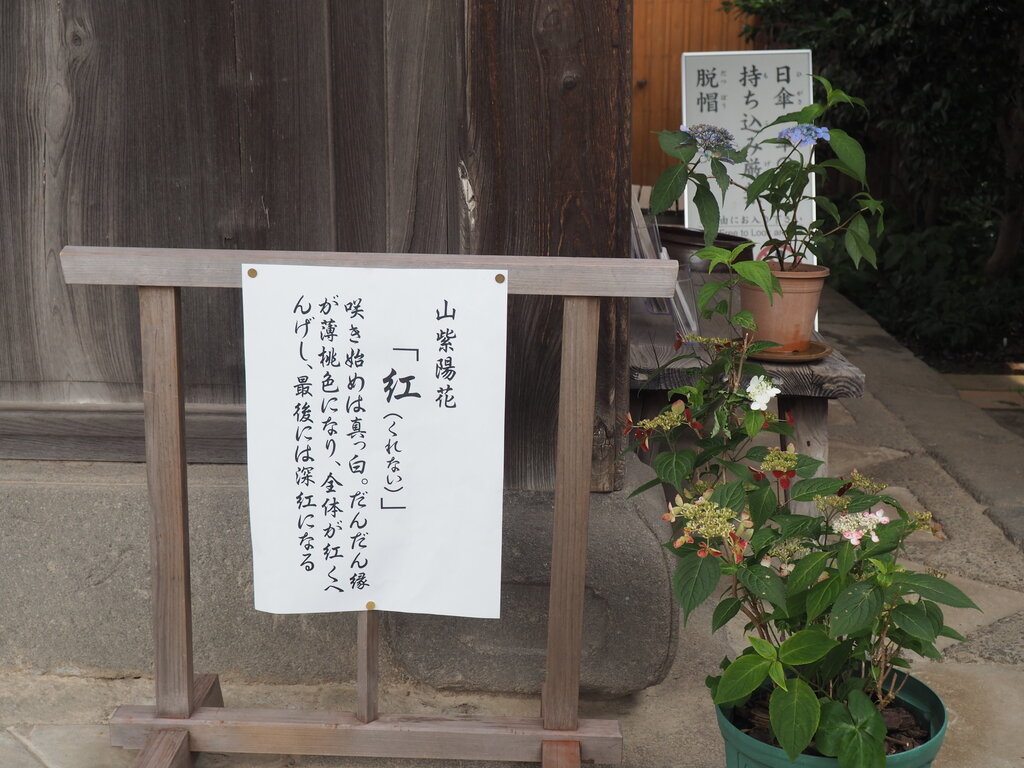 山紫陽花
「紅(くれない)」
咲き始めは真っ白。だんだん縁
が薄桃色になり、全体が紅くへ
んげし、最後には深紅になる
日傘
持ち込み厳
脱帽